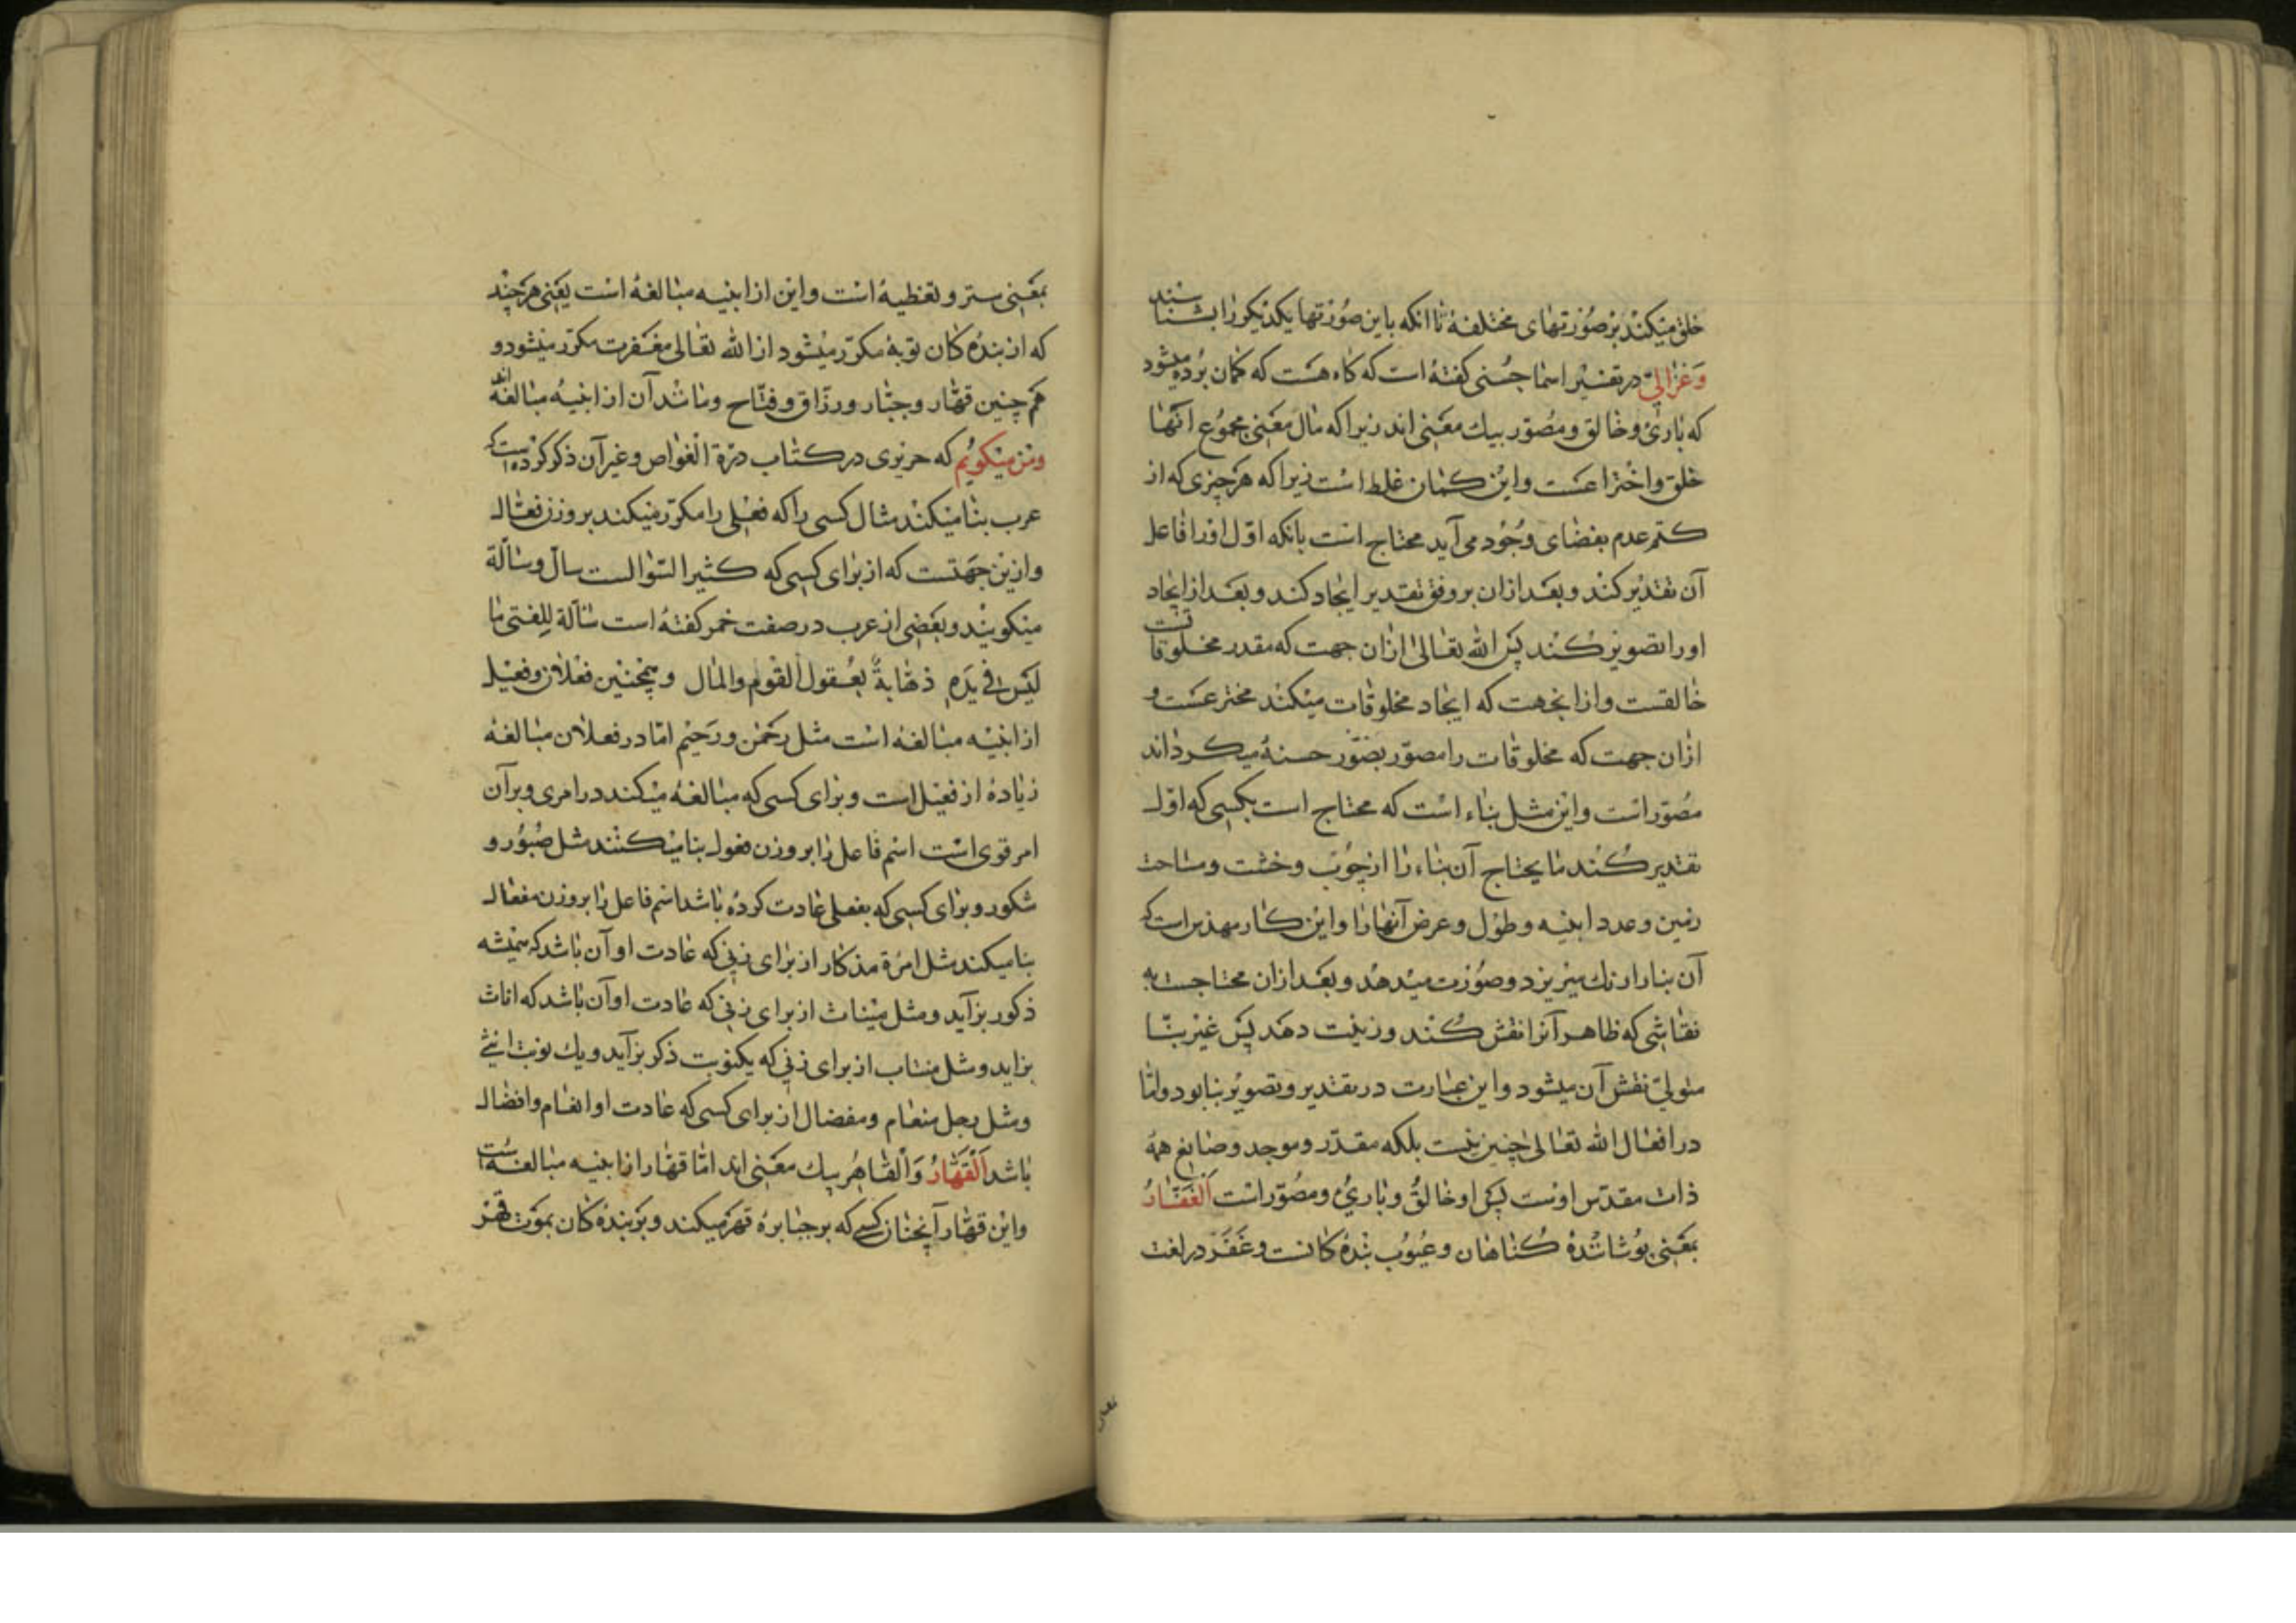 خلق میکند بر صورتهای مختلفه تا انکه باین صورتها یکدیکر را بشناسند
وغزالی در تفسیر اسما حسنی کفته است که کاه هست که کمان برده میشود
که باری وخالق ومصور بیك معنی اند زیرا که مال معنی مجموع انها
خلق واختراعست واین کمان غلط است زیرا که هر چیزی که از
کتم عدم بفضای وجود می آید محتاج است بانکه اول اورا فاعل
آن تقدیر کند وبعد ازان بر وفق تقدیر ایجاد کند وبعد از ایجاد
اورا تصویر کند پس الله تعالی ازان جهت که مقدر مخلوقاتست
خالقست وازانجهت که ایجاد مخلوقات میکند مخترعست و
ازان جهت که مخلوقات را مصور بصور حسنه میکرداند
مصور است واین مثل بناء است که محتاج است بکسی که اول
تقدیر کند ما یحتاج آن بناء را از چوب وخشت ومساحت
زمین وعدد ابنیه وطول وعرض آنها را واین کار مهندس است که
آن بنا را رنك میریزد وصورت میدهد وبعد ازان محتاجست به
نقاشی که ظاهر آنرا نقش کند وزینت دهد پس غیر بنا
متولی نقش آن میشود واین عبارت در تقدیر وتصویر بنا بود واما
در افعال الله تعالی چنین نیست بلکه مقدر وموجد وصانع همه
ذات مقدس اوست پس او خالق وباریء ومصور است اَلغَفّارُ
بمعنی پوشانندهٔ کناهان وعیوب بنده کانست وغَفَرَ در لغت
بمعنی ستر وتغطیه است واین از ابنیه مبالغه است یعنی هر چند
که از بنده کان توبه مکرر میشود از الله تعالی مغفرت مکرر میشود و
هم چنین قهّار وجبّار ورزّاق وفتّاح ومانند آن از ابنیهٔ مبالغه اند
ومن میکویم که حریری در کتاب درة الغواص وغیر آن ذکر کرده است که
عرب بنا میکند مثال کسی را که فعلی را مکرر میکند بر وزن فعال
وازین جهتست که از برای کسی که کثیر السؤالست سال وسالة
میکویند وبعضی از عرب در صفت خمر کفته است سآلة للفتی ما
لیس فی یده ذهابة بعقول القوم والمال وهمچنین فعلان وفعیل
از ابنیه مبالغه است مثل رحمن ورحیم اما در فعلان مبالغه
زیاده از فعیل است وبرای کسی که مبالغه میکند در امری وبر آن
امر قوی است اسم فاعل را بر وزن فعول بنا میکنند مثل صبور و
شکور وبرای کسی که بفعلی عادت کرده باشد اسم فاعل را بر وزن مفعال
بنا میکند مثل امرٔة مذکار از برای زنی که عادت او آن باشد که همیشه
ذکور بزآید ومثل میناث از برای زنی که عادت او آن باشد که اناث
بزاید ومثل منتاب از برای زنی که یکنوبت ذکر بزآید ویك نوبت انثی
ومثل رجل منعام ومفضال از برای کسی که عادت او انعام وافضال
باشد اَلْقَهّارُ وَالْقاهِرُ بیك معنی اند اما قهّار از ابنیه مبالغه است
واین قهّار آنچنان کسی که بر جبابره قهر میکند وبر بنده کان بموت قهر